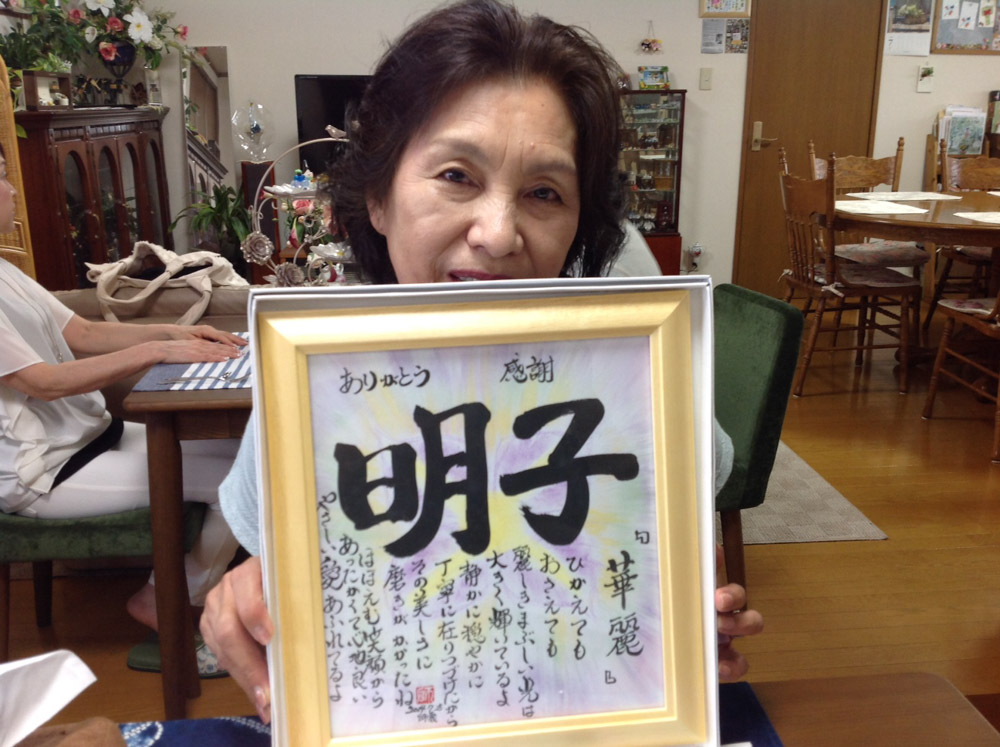 ありがとう 感謝
明子
「華麗」
ひかえても
おさえても
麗しきまぶしい光は
大きく輝いているよ
静かに穏やかに
丁寧に在りつづけたから
その美しさに
磨きがかかったね
ほほえむ笑顔から
あったかくて心地良い
やさしい愛あふれてるよ